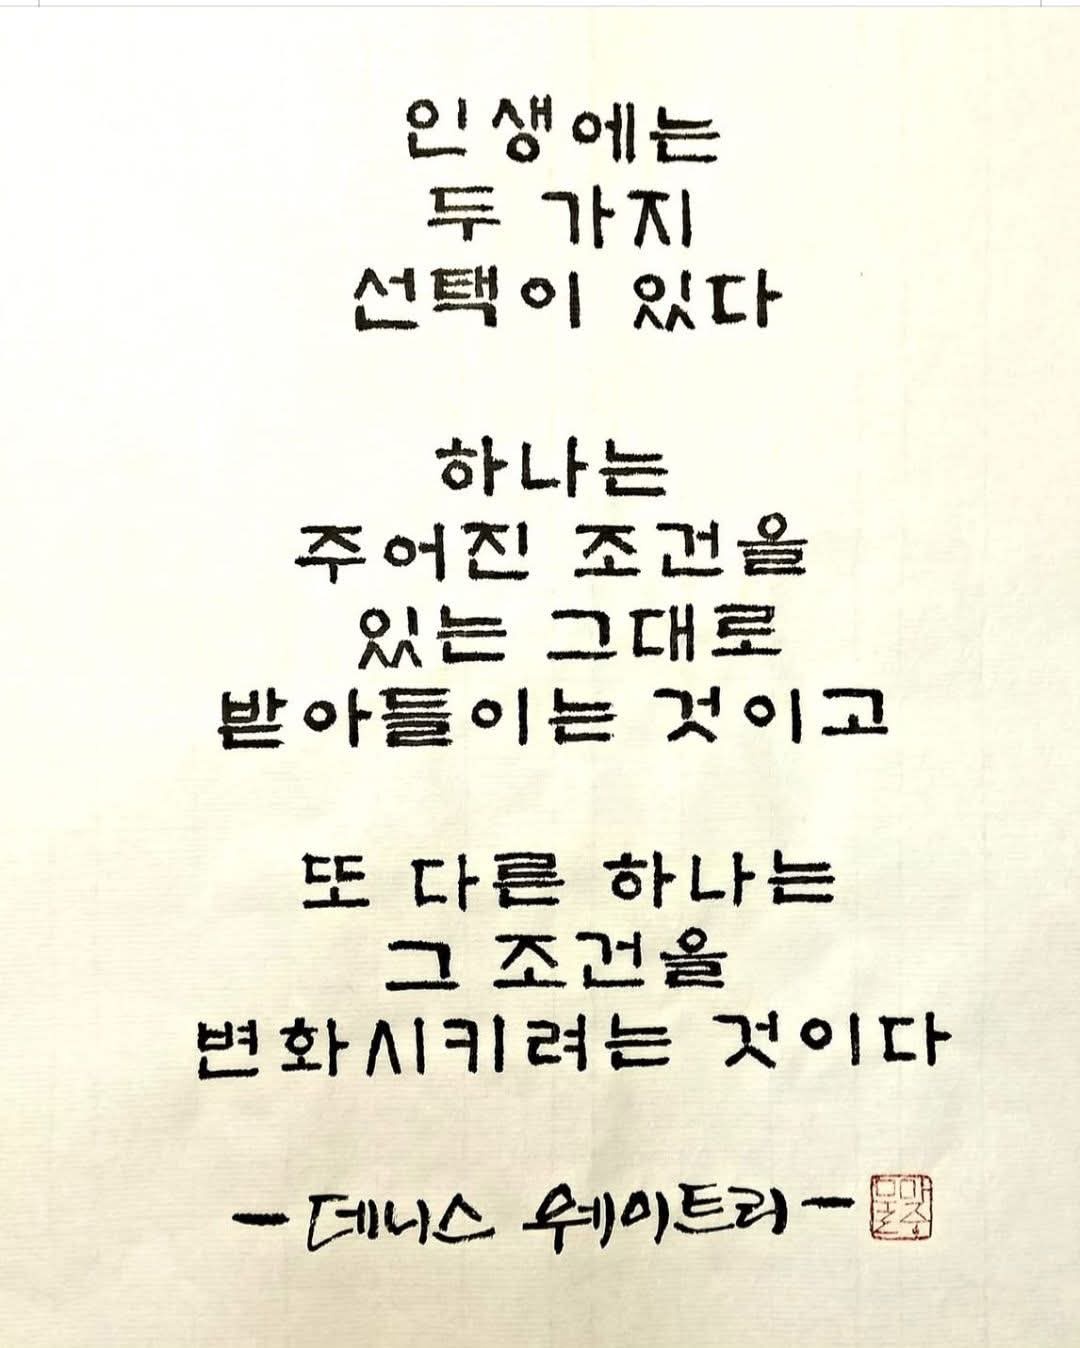 인생에는
두 가지
선택이 있다
하나는
주어진 조건을
있는 그대로
받아들이는 것이고
또 다른 하나는
그 조건을
변화시키려는 것이다
-데니스 웨이트리-